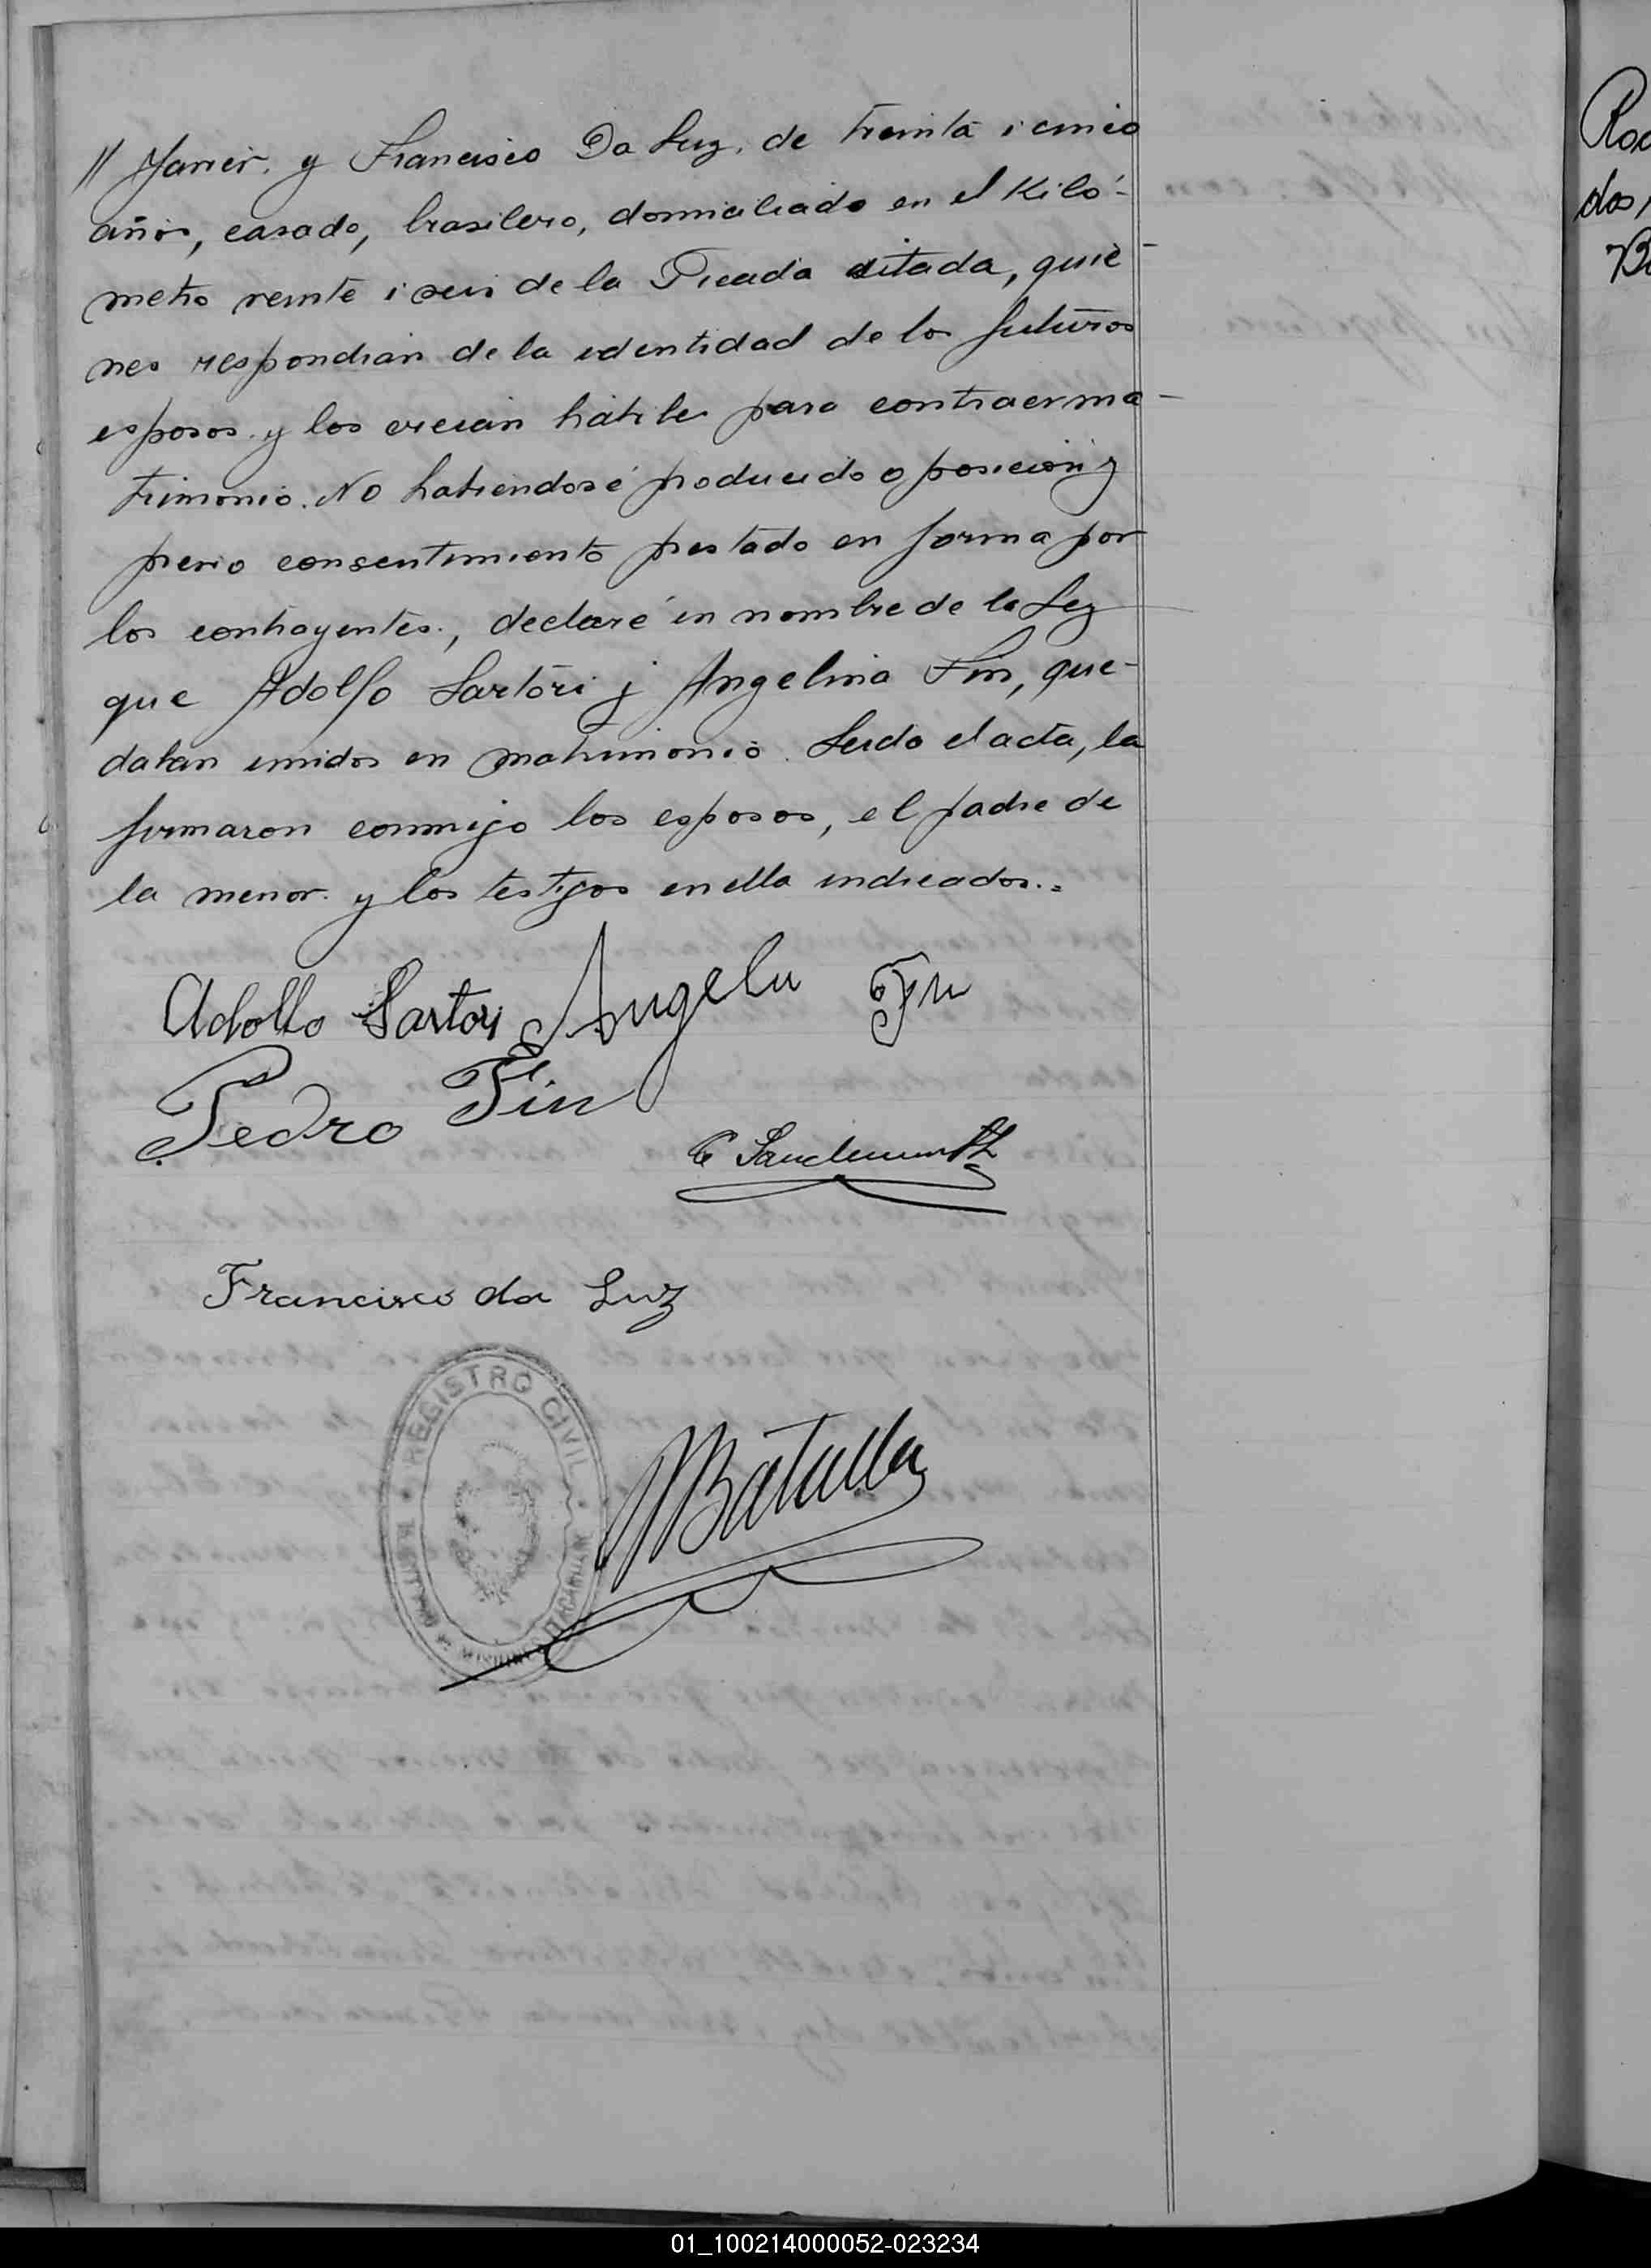 // Javier. y Francisco Da Luz, de treinta i cinco
años, casado, brasilero, domiciliado en el Kiló-
metro veinte i seis de la Picada citada, quie-
nes respondian de la identidad de los futuros
esposos y los creian hábiles para contraer ma-
trimonio. No habiendosé producido oposición y
previo consentimiento prestado en forma por
los contrayentes, declaré en nombre de la Ley
que Adolfo Sartori y Angelina Fin, que-
daban unidos en matrimonio. Leido el acta, la
firmaron conmigo los esposos, el padre de
la menor y los testigos en ella indicados.=
Adolfo Sartori Angelu Fin
Pedro Fin
Francisco da Luz
REGISTRO CIVIL
Batalla
Roa
dos,
01_100214000052-023234